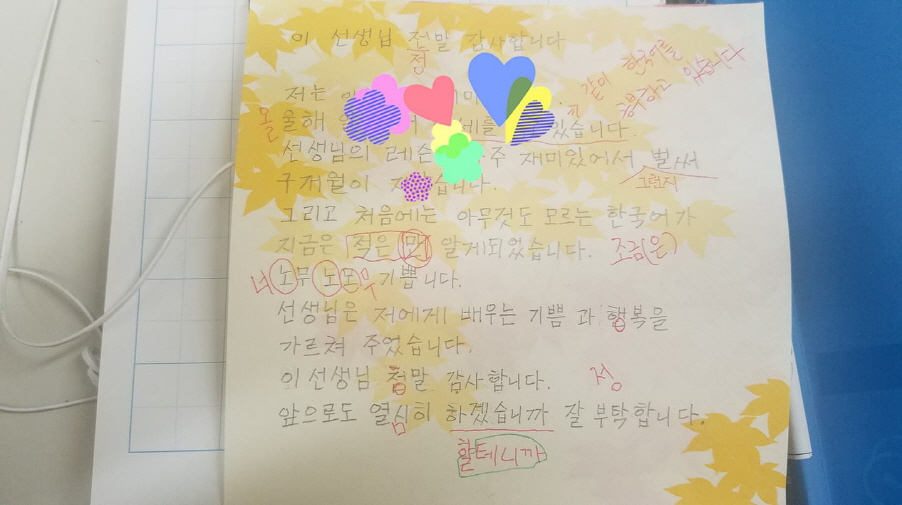 이 선생님 전말 감사합니다
정
저는
같이 한국어를
공부하고 있습니다
올
울해 를 있습니다.
선생님의 레슨 주 재미있어서 벌써
그런지
7개월이 습니다.
그리고 처음에는 아무것도 모르는 한국어가
지금은 적은 만 알게되었습니다. 조금(은)
너 노무 노무 기쁩니다.
선생님은 저에게 배우는 기쁨 과 행복을
가르쳐 주었습니다.
이 선생님 첨말 감사합니다. 정
앞으로도 열심히 하겠습니까 잘 부탁합니다.
할테니까